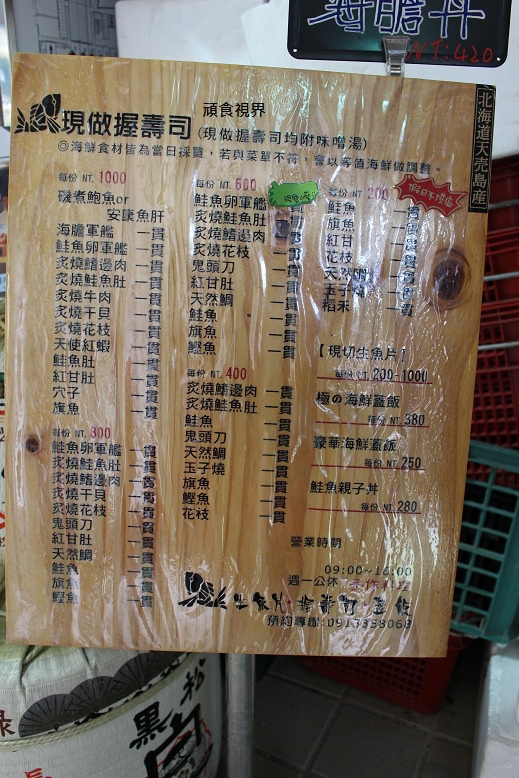 海膽丼
NT:420
北海道天売島産
現做握壽司
頑食視界
(現做握壽司均附味噌湯)
◎海鮮食材皆為當日採買，若與菜單不符，會以等值海鮮做調整。
每份 NT. 1000
磯煮鮑魚or
安康魚肝
海膽軍艦 一貫
鮭魚卵軍艦 一貫
炙燒鰭邊肉 一貫
炙燒鮭魚肚 一貫
炙燒牛肉 一貫
炙燒干貝 一貫
炙燒花枝 一貫
天使紅蝦 一貫
鮭魚肚 一貫
紅甘肚 一貫
穴子 一貫
旗魚 一貫
每份 NT. 800
鮭魚卵軍艦 一貫
炙燒鮭魚肚 一貫
炙燒鰭邊肉 一貫
炙燒干貝 一貫
炙燒花枝 一貫
鬼頭刀 一貫
紅甘肚 一貫
天然鯛 一貫
鮭魚 一貫
旗魚 一貫
鰹魚 一貫
每份 NT. 600
鮭魚卵軍艦 一貫
炙燒鮭魚肚 一貫
炙燒鰭邊肉 一貫
炙燒花枝 一貫
鬼頭刀 一貫
紅甘肚 一貫
天然鯛 一貫
鮭魚 一貫
旗魚 一貫
鰹魚 一貫
每份 NT. 400
炙燒鰭邊肉 一貫
炙燒鮭魚肚 一貫
鮭魚 一貫
鬼頭刀 一貫
天然鯛 一貫
玉子燒 一貫
旗魚 一貫
鰹魚 一貫
花枝 一貫
每份 NT. 200
假日不供應
鮭魚 一貫
旗魚 一貫
紅甘 一貫
花枝 一貫
天然鯛 一貫
玉子燒 一貫
稻禾 一貫
【現切生魚片】
每份 NT. 200-1000
極の海鮮蓋飯
每份 NT. 380
豪華海鮮蓋飯
每份 NT. 250
鮭魚親子丼
每份 NT. 280
營業時間
09:00~16:00
週一公休
手作料理
預約專線:0913358068
黑松